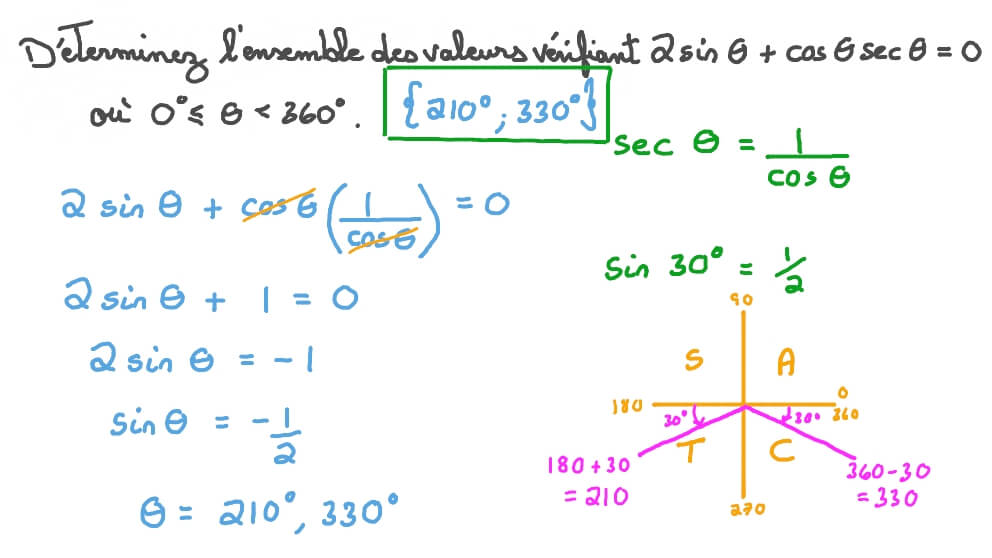 Déterminez l'ensemble des valeurs vérifiant 2 sin θ + cos θ sec θ = 0
où 0° ≤ θ < 360°. {210°; 330°}
sec θ = 1/cos θ
2 sin θ + cos θ (1/cos θ) = 0
sin 30° = 1/2
2 sin θ + 1 = 0
2 sin θ = -1
sin θ = -1/2
θ = 210°, 330°
90
S A
180 0
360
30° 30°
T C
180+30
= 210
360-30
= 330
270